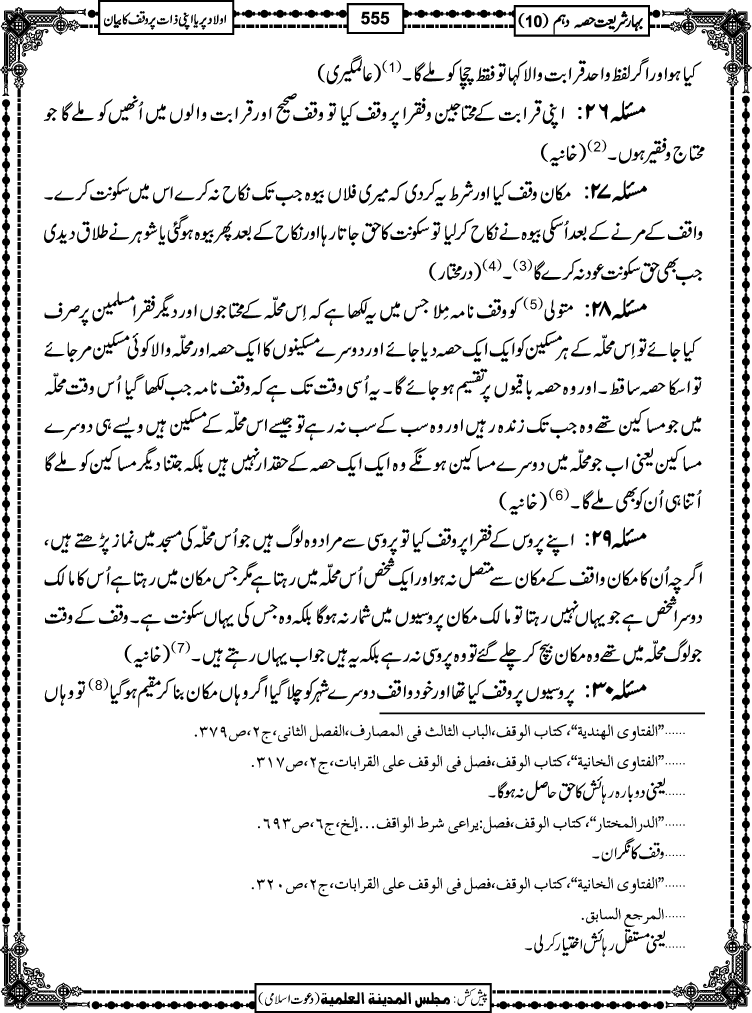 بہار شریعت حصہ دہم (10)
555
اولاد پر یا اپنی ذات پر وقف کا بیان
کیا ہوا ور اگر لفظ واحد قرابت والا کہا تو فقط چچا کو ملے گا۔(1) (عالمگیری)
مسئلہ ۲۶: اپنی قرابت کے محتاجین وفقرا پر وقف کیا تو وقف صحیح اور قرابت والوں میں اُنھیں کو ملے گا جو
محتاج وفقیر ہوں۔(2) (خانیہ)
مسئلہ ۲۷: مکان وقف کیا اور شرط یہ کردی کہ میری فلاں بیوہ جب تک نکاح نہ کرے اس میں سکونت کرے۔
واقف کے مرنے کے بعد اُسکی بیوہ نے نکاح کرلیا تو سکونت کا حق جاتا رہا اور نکاح کے بعد پھر بیوہ ہوگئی یا شوہر نے طلاق دیدی
جب بھی حق سکونت عود نہ کرے گا(3)۔(4) (درمختار)
مسئلہ ۲۸: متولی(5) کو وقف نامہ مِلا جس میں یہ لکھا ہے کہ اِس محلّہ کے محتاجوں اور دیگر فقرا مسلمین پر صرف
کیا جائے تو اِس محلّہ کے ہر مسکین کو ایک ایک حصہ دیا جائے اور دوسرے مسکینوں کا ایک حصہ اور محلّہ والا کوئی مسکین مرجائے
تو اسکا حصہ ساقط۔ اور وہ حصہ باقیوں پر تقسیم ہو جائے گا۔ یہ اُسی وقت تک ہے کہ وقف نامہ جب لکھا گیا اُس وقت محلّہ
میں جو مساکین تھے وہ جب تک زندہ رہیں اور وہ سب کے سب نہ رہے تو جیسے اس محلّہ کے مسکین ہیں ویسے ہی دوسرے
مساکین یعنی اب جو محلّہ میں دوسرے مساکین ہونگے وہ ایک ایک حصہ کے حقدار نہیں ہیں بلکہ جتنا دیگر مساکین کو ملے گا
اُتنا ہی اُن کو بھی ملے گا۔(6) (خانیہ)
مسئلہ ۲۹: اپنے پروس کے فقرا پر وقف کیا تو پروسی سے مراد وہ لوگ ہیں جو اُس محلّہ کی مسجد میں نماز پڑھتے ہیں،
اگرچہ اُن کا مکان واقف کے مکان سے متصل نہ ہو اور ایک شخص اُس محلّہ میں رہتا ہے مگر جس مکان میں رہتا ہے اُس کا مالک
دوسرا شخص ہے جو یہاں نہیں رہتا تو مالک مکان پروسیوں میں شمار نہ ہوگا بلکہ وہ جس کی یہاں سکونت ہے۔ وقف کے وقت
جو لوگ محلّہ میں تھے وہ مکان بیچ کر چلے گئے تو وہ پروسی نہ رہے بلکہ یہ ہیں جو اب یہاں رہتے ہیں۔(7) (خانیہ)
مسئلہ ۳۰: پروسیوں پر وقف کیا تھا اور خود واقف دوسرے شہر کو چلا گیا اگر وہاں مکان بنا کر مقیم ہوگیا(8) تو وہاں
......”الفتاوی الهندیة“، کتاب الوقف، الباب الثالث فی المصارف، الفصل الثانی، ج۲، ص۳۷۹.
......”الفتاوی الخانیة“، کتاب الوقف، فصل فی الوقف علی القرابات، ج۲، ص۳۱۷.
......یعنی دوبارہ رہائش کا حق حاصل نہ ہوگا۔
......”الدرالمختار“، کتاب الوقف، فصل: یراعی شرط الواقف... إلخ، ج۶، ص۶۹۳.
......وقف کا نگران۔
......”الفتاوی الخانیة“، کتاب الوقف، فصل فی الوقف علی القرابات، ج۲، ص۳۲۰.
......المرجع السابق.
......یعنی مستقل رہائش اختیار کر لی۔
پیش کش: مجلس المدینة العلمیة (دعوت اسلامی)